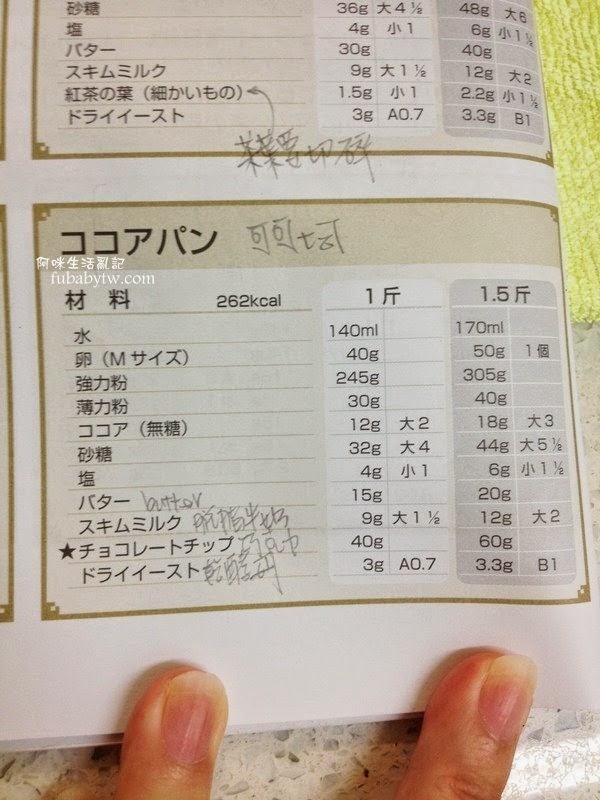 砂糖 36g 大4½ 48g 大6
塩 4g 小1 6g 小1½
バター 30g 40g
スキムミルク 9g 大1½ 12g 大2
紅茶の葉（細かいもの） 1.5g 小1 2.2g 小1½
ドライイースト 3g A0.7 3.3g B1
茶葉要切碎
ココアパン 可可土司
阿咪生活亂記
fubabytw.com
材 料 262kcal 1斤 1.5斤
水 140ml 170ml
卵（Mサイズ） 40g 50g 1個
強力粉 245g 305g
薄力粉 30g 40g
ココア（無糖） 12g 大2 18g 大3
砂糖 32g 大4 44g 大5½
塩 4g 小1 6g 小1½
バター butter 15g 20g
スキムミルク 脫脂牛奶 9g 大1½ 12g 大2
★チョコレートチップ 40g 60g
ドライイースト 乾酵母 3g A0.7 3.3g B1